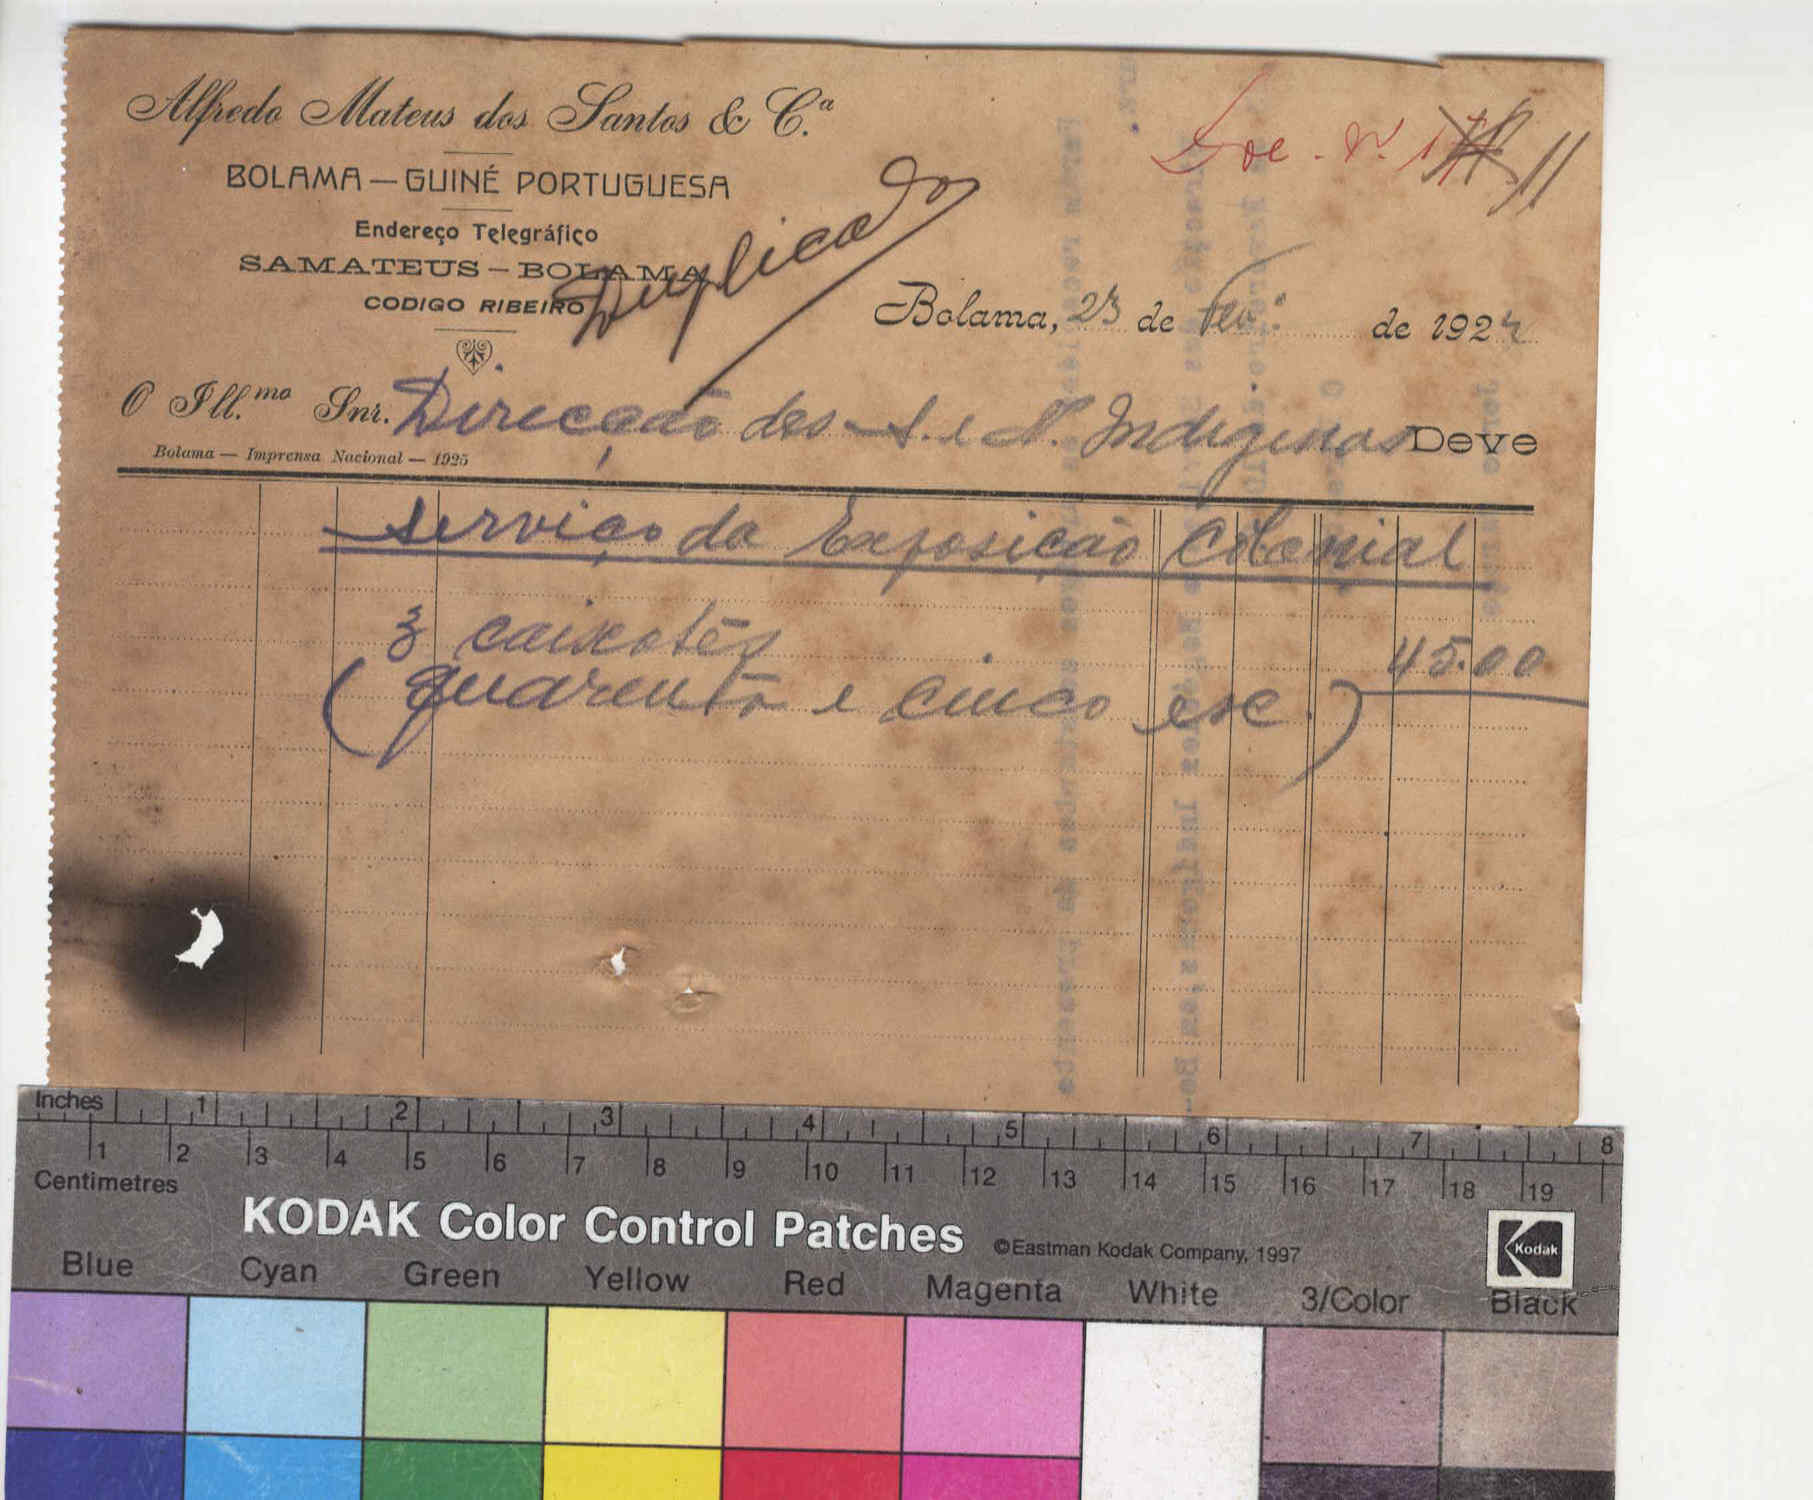 Alfredo Mateus dos Santos & C.ª
BOLAMA — GUINÉ PORTUGUESA
Endereço Telegráfico
SAMATEUS – BOLAMA
CODIGO RIBEIRO
Duplicado
Doc. N. 11
Bolama, 23 de Fev. de 192
O Ill.mo Snr. Direcção dos S. e N. Indigenas Deve
Bolama — Imprensa Nacional — 1925
Serviço da Exposição Colonial
3 caixotes 45.00
(quarenta e cinco esc.)
Inches 1 2 3 4 5 6 7 8
1 2 3 4 5 6 7 8 9 10 11 12 13 14 15 16 17 18 19
Centimetres
KODAK Color Control Patches ©Eastman Kodak Company, 1997 Kodak
Blue Cyan Green Yellow Red Magenta White 3/Color Black